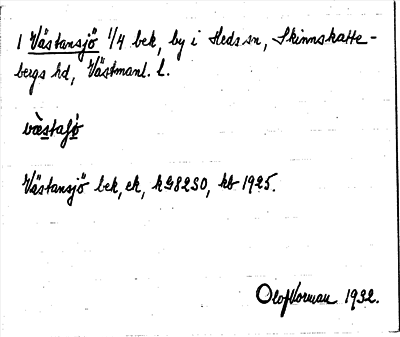 1 Västansjö 1/4 bek, by i Heds sn, Skinnskatte-
bergs hd, Västmanl. l.
Västansjö bek, ek, kG8230, kb 1925.
Olof Norman 1932.